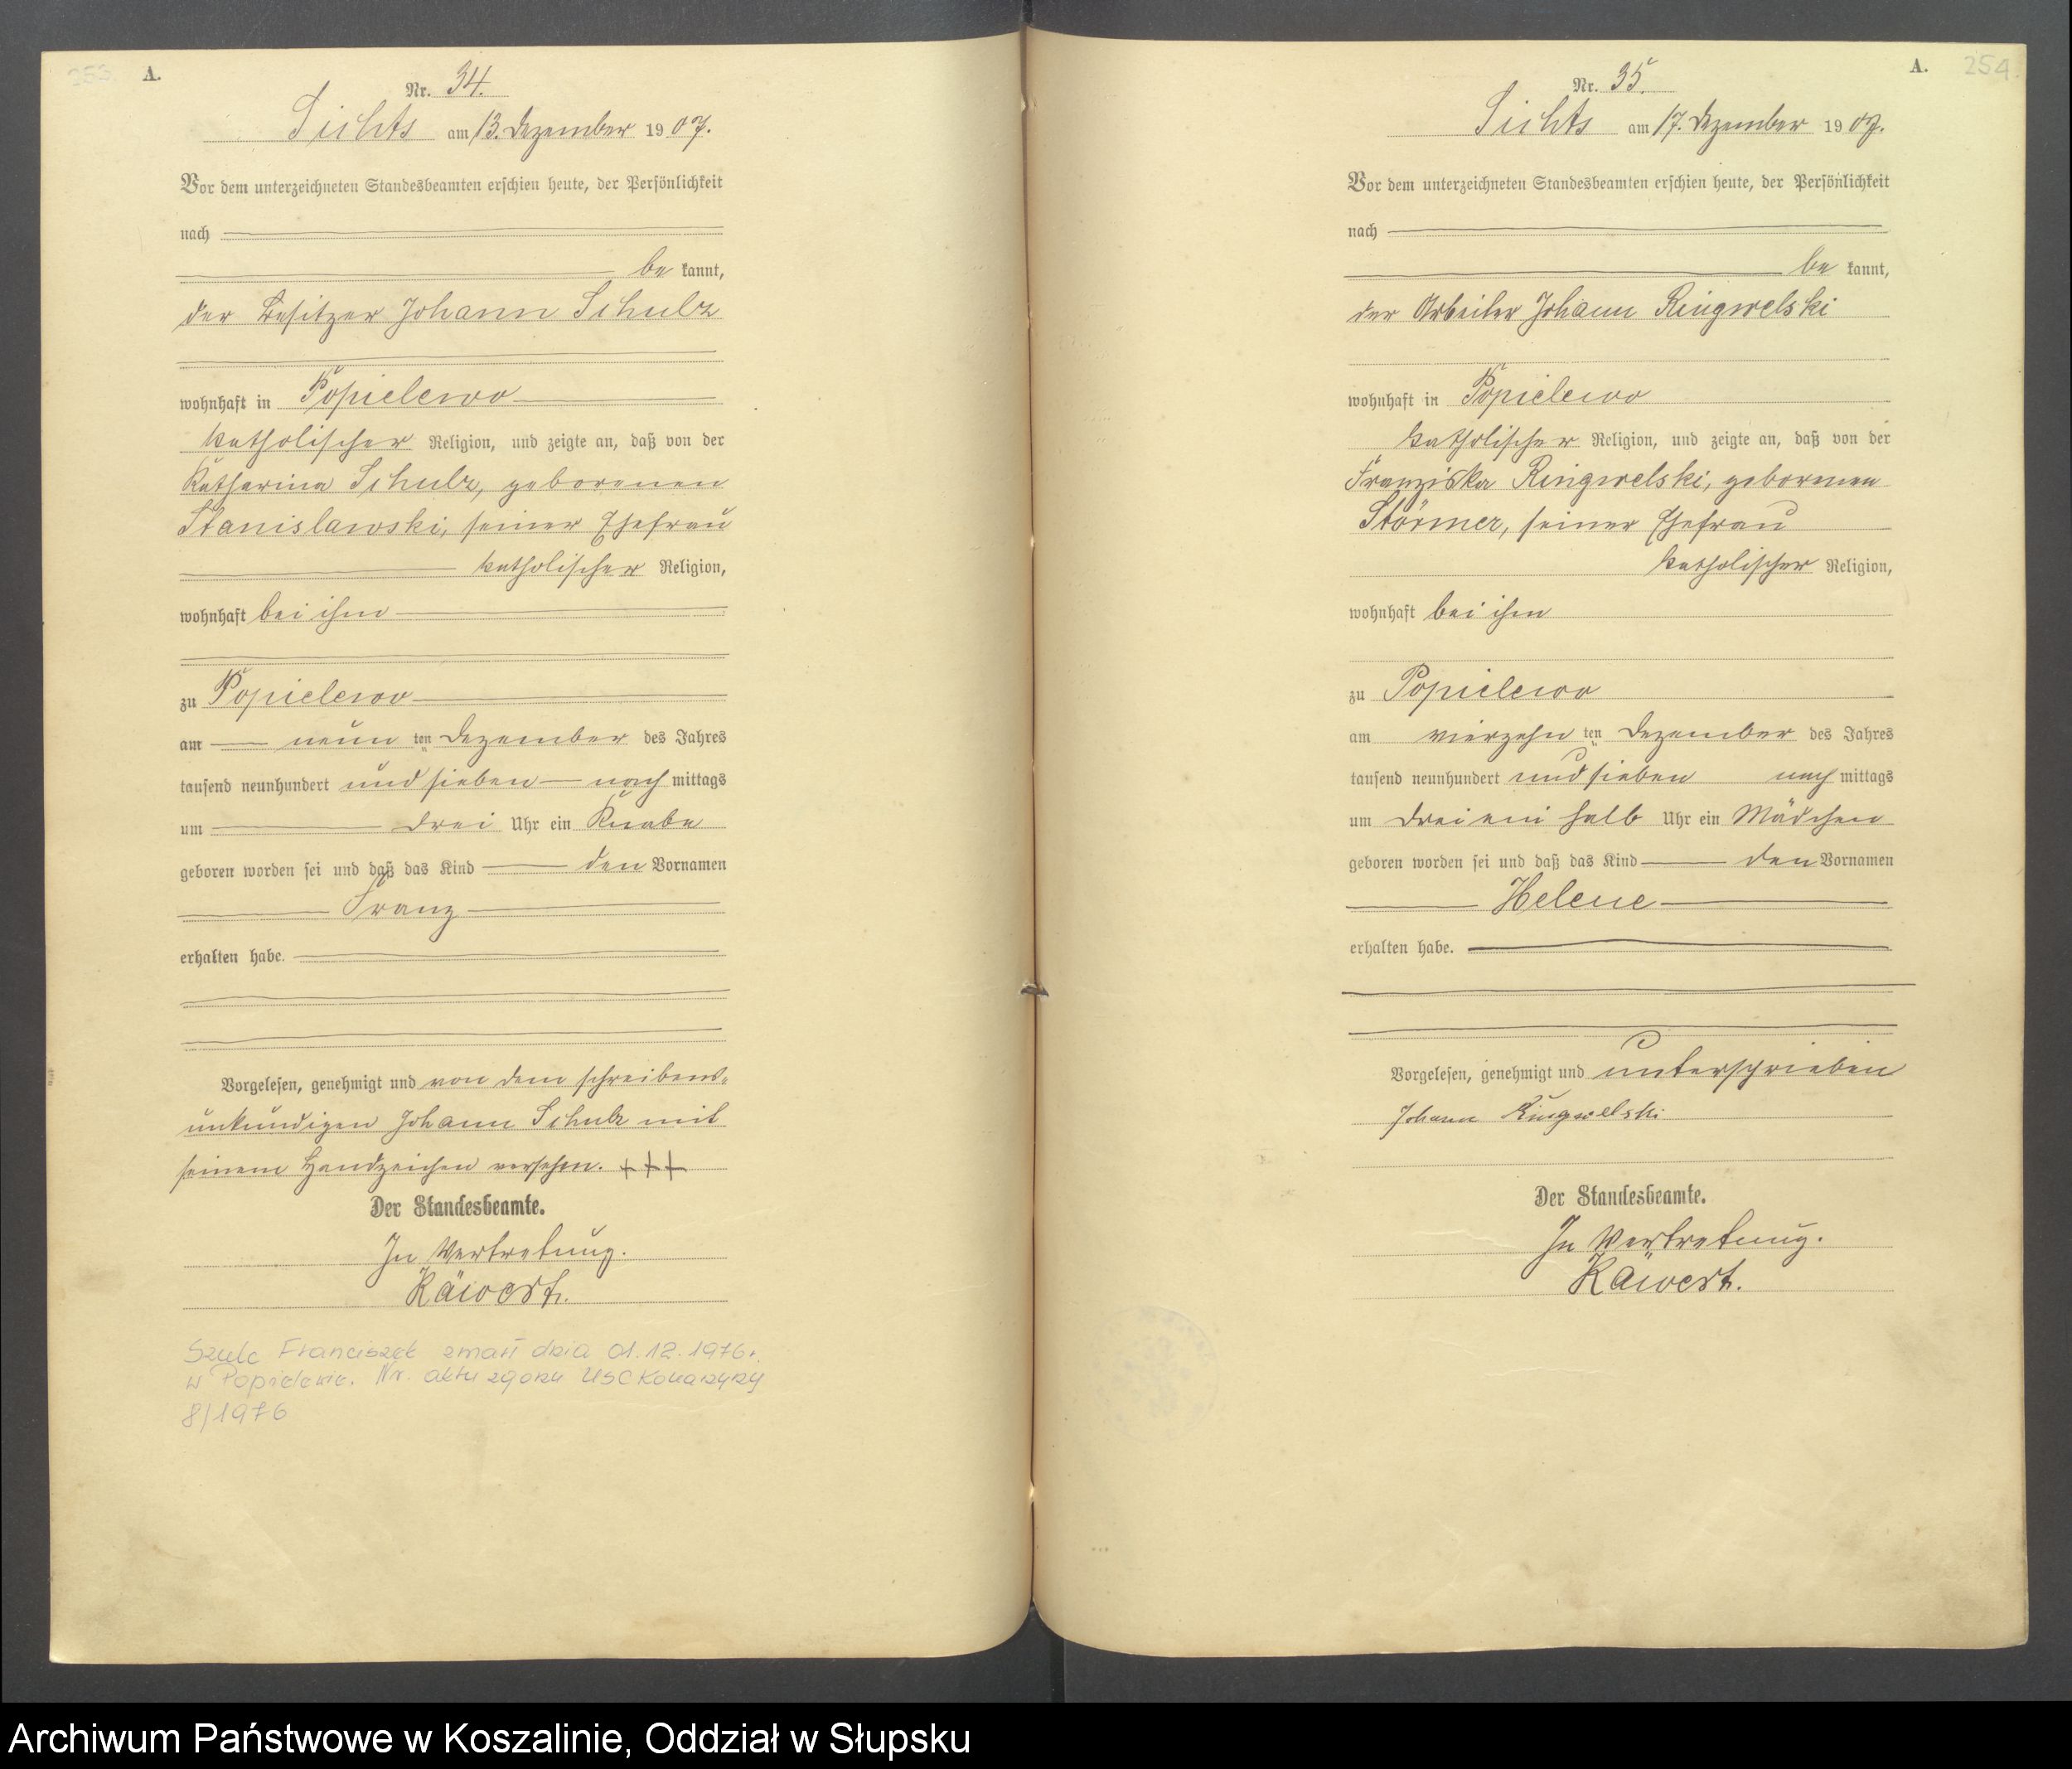 253. A.
Nr. 34.
Sichts am 13. Dezember 1907.
Vor dem unterzeichneten Standesbeamten erschien heute, der Persönlichkeit
nach
be kannt,
der Besitzer Johann Schulz
wohnhaft in Popielewo
katholischer Religion, und zeigte an, daß von der
Katharina Schulz, geborenen
Stanislawski, seiner Ehefrau
katholischer Religion,
wohnhaft bei ihm
zu Popielewo
am neun ten Dezember des Jahres
tausend neunhundert und sieben nach mittags
um drei Uhr ein Knabe
geboren worden sei und daß das Kind den Vornamen
Franz
erhalten habe.
Vorgelesen, genehmigt und von dem schreibens-
unkundigen Johann Schulz mit
seinem Handzeichen versehen. +++
Der Standesbeamte.
In Vertretung.
Käwert.
Szulc Franciszek zmarł dnia 01.12.1976r.
w Popielewie. Nr. aktu zgonu USC Konarzyny
8/1976
A. 254.
Nr. 35.
Sichts am 17. Dezember 1907.
Vor dem unterzeichneten Standesbeamten erschien heute, der Persönlichkeit
nach
be kannt,
der Arbeiter Johann Ringwelski
wohnhaft in Popielewo
katholischer Religion, und zeigte an, daß von der
Franziska Ringwelski, geborenen
Störmer, seiner Ehefrau
katholischer Religion,
wohnhaft bei ihm
zu Popielewo
am vierzehn ten Dezember des Jahres
tausend neunhundert und sieben nach mittags
um drei ein halb Uhr ein Mädchen
geboren worden sei und daß das Kind den Vornamen
Helene
erhalten habe.
Vorgelesen, genehmigt und unterschrieben
Johann Ringwelski
Der Standesbeamte.
In Vertretung.
Käwert.
Archiwum Państwowe w Koszalinie, Oddział w Słupsku